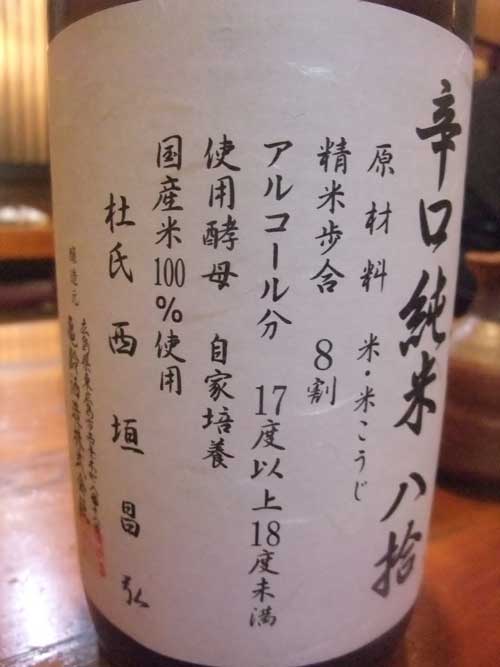 辛口純米 八拾
原材料 米・米こうじ
精米歩合 8割
アルコール分 17度以上18度未満
使用酵母 自家培養
国産米100%使用
杜氏 西垣昌弘
醸造元 亀齢酒造株式会社
広島県東広島市西条本町八番十八号